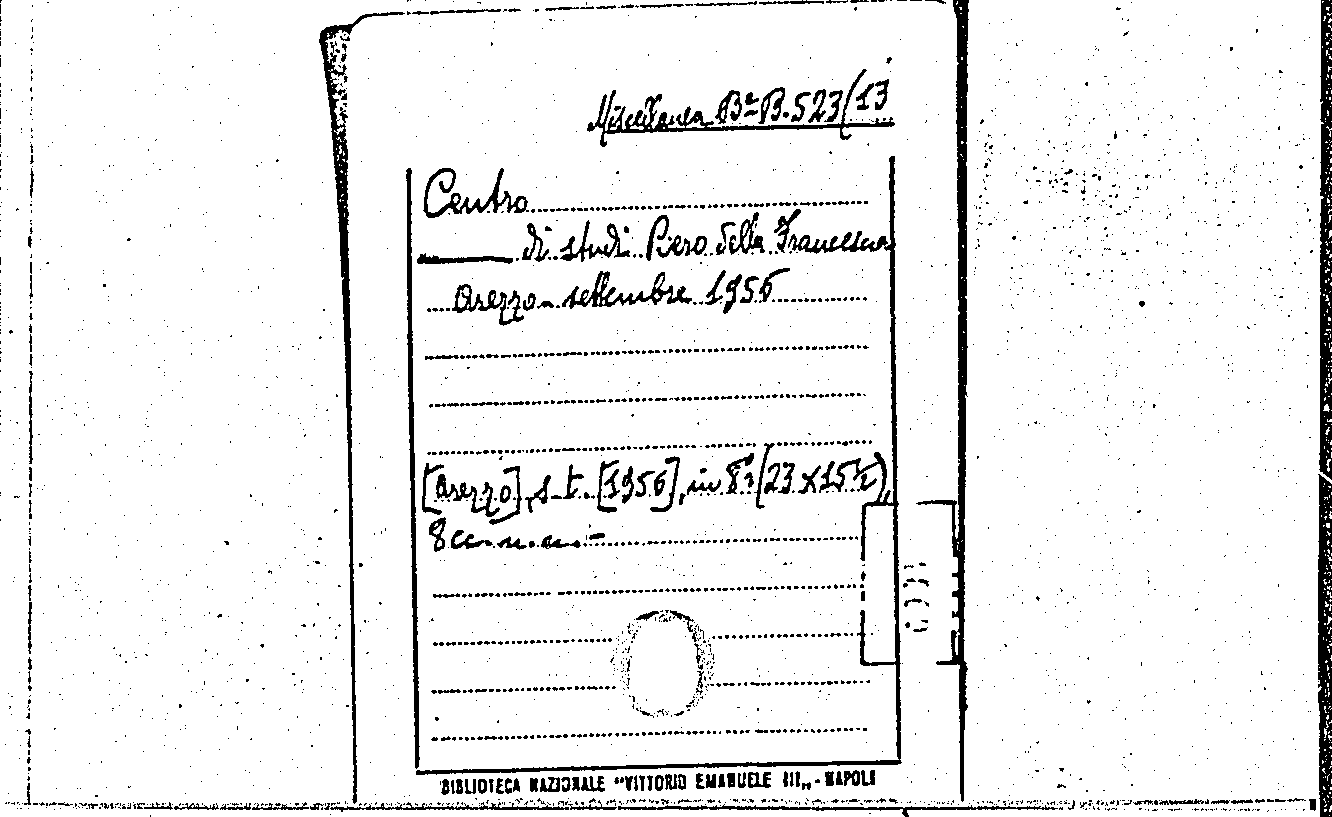 Miscellanea Bª B. 523/13
Centro
di studi Piero della Francesca
Arezzo - settembre 1956
[Arezzo], s. t. [1956], in 8º (23 x 15½),
8 cc. n. n. -
BIBLIOTECA NAZIONALE "VITTORIO EMANUELE III„ - NAPOLI